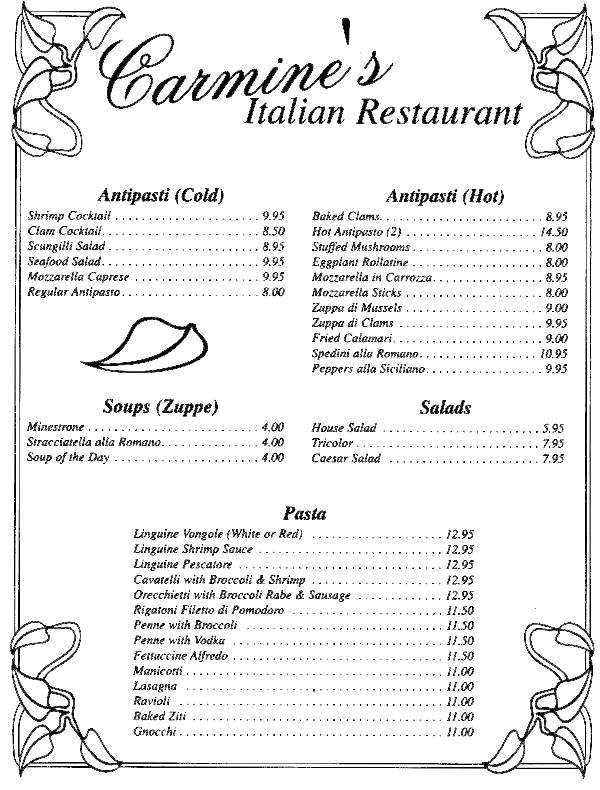 Carmine's
Italian Restaurant
Antipasti (Cold)
Shrimp Cocktail . . . . . . . . . . . . . . . . . . . . . . 9.95
Clam Cocktail. . . . . . . . . . . . . . . . . . . . . . . . 8.50
Scungilli Salad . . . . . . . . . . . . . . . . . . . . . . . 8.95
Seafood Salad. . . . . . . . . . . . . . . . . . . . . . . . 9.95
Mozzarella Caprese . . . . . . . . . . . . . . . . . . . 9.95
Regular Antipasto. . . . . . . . . . . . . . . . . . . . . 8.00
Antipasti (Hot)
Baked Clams. . . . . . . . . . . . . . . . . . . . . . . . . 8.95
Hot Antipasto (2) . . . . . . . . . . . . . . . . . . . . . 14.50
Stuffed Mushrooms . . . . . . . . . . . . . . . . . . . . 8.00
Eggplant Rollatine . . . . . . . . . . . . . . . . . . . . 8.00
Mozzarella in Carrozza. . . . . . . . . . . . . . . . . 8.95
Mozzarella Sticks . . . . . . . . . . . . . . . . . . . . . 8.00
Zuppa di Mussels . . . . . . . . . . . . . . . . . . . . . 9.00
Zuppa di Clams . . . . . . . . . . . . . . . . . . . . . . 9.95
Fried Calamari. . . . . . . . . . . . . . . . . . . . . . . 9.00
Spedini alla Romano. . . . . . . . . . . . . . . . . . 10.95
Peppers alla Siciliano. . . . . . . . . . . . . . . . . . 9.95
Soups (Zuppe)
Minestrone . . . . . . . . . . . . . . . . . . . . . . . . . . 4.00
Stracciatella alla Romano. . . . . . . . . . . . . . . 4.00
Soup of the Day . . . . . . . . . . . . . . . . . . . . . . 4.00
Salads
House Salad . . . . . . . . . . . . . . . . . . . . . . . . 5.95
Tricolor . . . . . . . . . . . . . . . . . . . . . . . . . . . . 7.95
Caesar Salad . . . . . . . . . . . . . . . . . . . . . . . 7.95
Pasta
Linguine Vongole (White or Red) . . . . . . . . . . . . . . . . . . . . 12.95
Linguine Shrimp Sauce . . . . . . . . . . . . . . . . . . . . . . . . . . . . 12.95
Linguine Pescatore . . . . . . . . . . . . . . . . . . . . . . . . . . . . . . . 12.95
Cavatelli with Broccoli & Shrimp . . . . . . . . . . . . . . . . . . . . 12.95
Orecchietti with Broccoli Rabe & Sausage . . . . . . . . . . . . . 12.95
Rigatoni Filetto di Pomodoro . . . . . . . . . . . . . . . . . . . . . . . 11.50
Penne with Broccoli . . . . . . . . . . . . . . . . . . . . . . . . . . . . . . 11.50
Penne with Vodka . . . . . . . . . . . . . . . . . . . . . . . . . . . . . . . . 11.50
Fettuccine Alfredo . . . . . . . . . . . . . . . . . . . . . . . . . . . . . . . . 11.50
Manicotti . . . . . . . . . . . . . . . . . . . . . . . . . . . . . . . . . . . . . . . 11.00
Lasagna . . . . . . . . . . . . . . . . . . . . . . . . . . . . . . . . . . . . . . . 11.00
Ravioli . . . . . . . . . . . . . . . . . . . . . . . . . . . . . . . . . . . . . . . . 11.00
Baked Ziti . . . . . . . . . . . . . . . . . . . . . . . . . . . . . . . . . . . . . . 11.00
Gnocchi . . . . . . . . . . . . . . . . . . . . . . . . . . . . . . . . . . . . . . . . 11.00